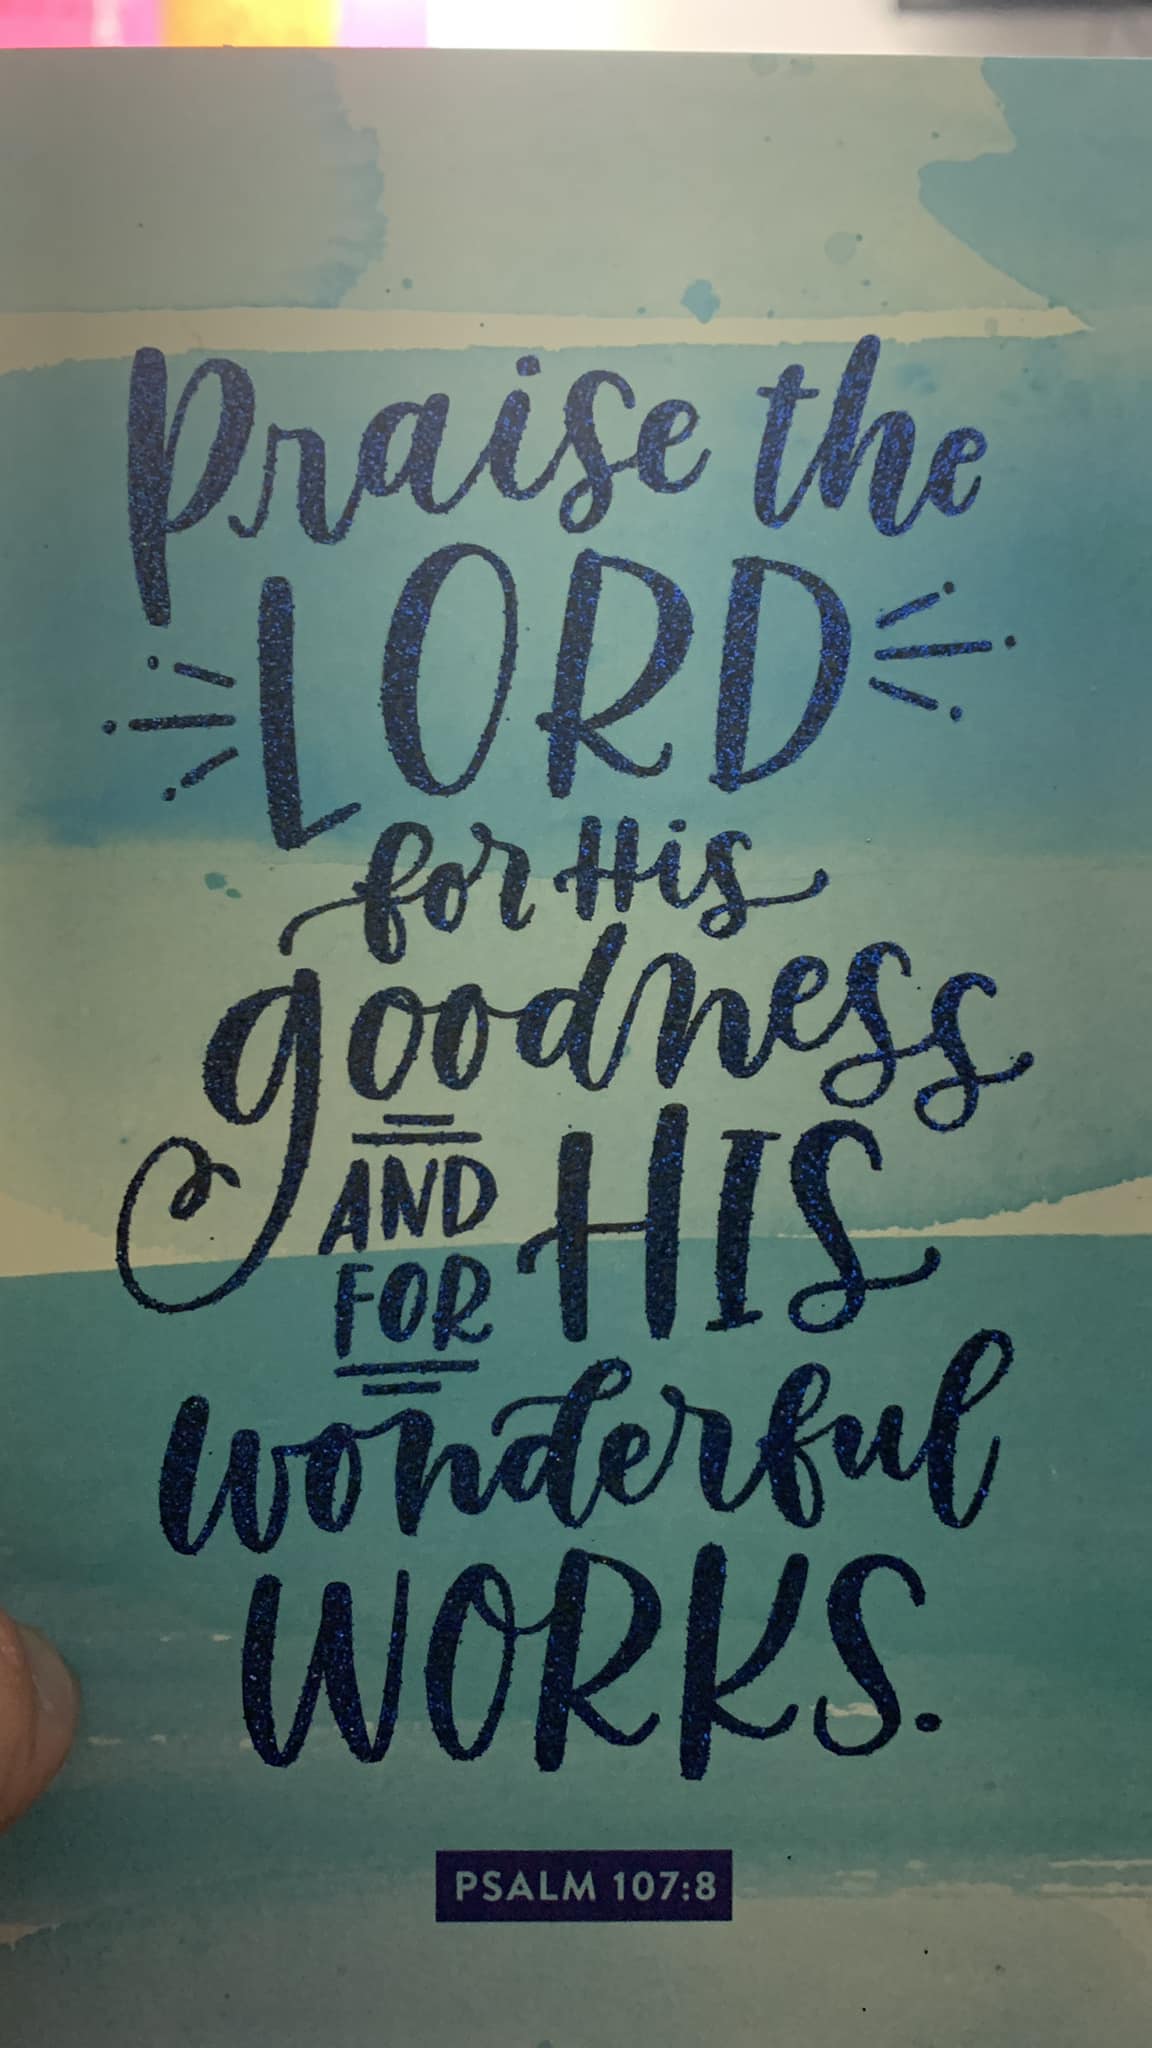 Praise the
LORD
for His
goodness
AND
FOR HIS
wonderful
WORKS.
PSALM 107:8